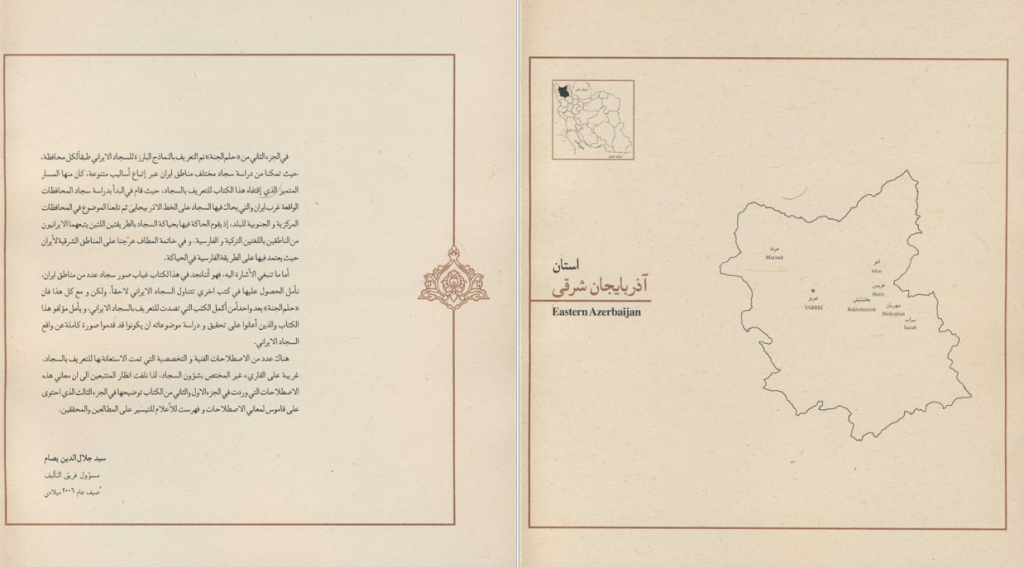 في الجزء الثاني من «حلم الجنة» تم التعريف بالنماذج البارزة للسجاد الايراني طبقاً لكل محافظة،
حيث تمكنا من دراسة سجاد مختلف مناطق ايران عبر إتباع أساليب متنوعة، كان منها المسار
المتميز الذي إقتفاه هذا الكتاب للتعريف بالسجاد، حيث قام في البدأ بدراسة سجاد المحافظات
الواقعة غرب ايران والتي يحاك فيها السجاد على الخط الاذربيجاني ثم تابعنا الموضوع في المحافظات
المركزية و الجنوبية للبلد، إذ يقوم الحاكة فيها بحياكة السجاد بالطريقتين اللتين يتبعهما الايرانيون
من الناطقين باللغتين التركية و الفارسية. و في خاتمة المطاف عرّجنا على المناطق الشرقية لأيران
حيث يعتمد فيها على الطريقة الفارسية في الحياكة.
أما ما تنبغي الأشارة اليه، فهو أننا نجد في هذا الكتاب غياب صور سجاد عدد من مناطق ايران،
نأمل الحصول عليها في كتب اخرى تتناول السجاد الايراني لاحقاً. ولكن و مع كل هذا فان
«حلم الجنة» يعد واحداً من أكمل الكتب التي تصدت للتعريف بالسجاد الايراني، و يأمل مؤلفو هذا
الكتاب والذين أعانوا على تحقيق و دراسة موضوعاته ان يكونوا قد قدموا صورة كاملة عن واقع
السجاد الايراني.
هناك عدد من الاصطلاحات الفنية و التخصصية التي تمت الاستعانة بها للتعريف بالسجاد،
غريبة على القاريء غير المختص بشؤون السجاد. لذا نلفت انظار المتتبعين الى ان معاني هذه
الاصطلاحات التي وردت في الجزء الاول والثاني من الكتاب توضيحها في الجزء الثالث الذي احتوى
على قاموس لمعاني الاصطلاحات و فهرست للأعلام للتيسير على المطالعين والمحققين.
سيد جلال الدين بصام
مسؤول فريق التأليف
صيف عام ٢٠٠٦ ميلادى
استان
آذربایجان شرقی
Eastern Azerbaijan
مرند
Marand
اهر
Ahar
هریس
Heris
تبریز
TABRIZ
بخشایش
Bakhshayesh
مهربان
Mehraban
سراب
Sarab